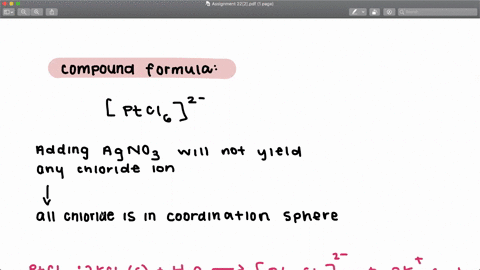 Assignment 32(2).pdf (1 page)
Search
compound formula:
[PtCl6]2-
Adding AgNO3 will not yield
any chloride ion
↓
all chloride is in coordination sphere